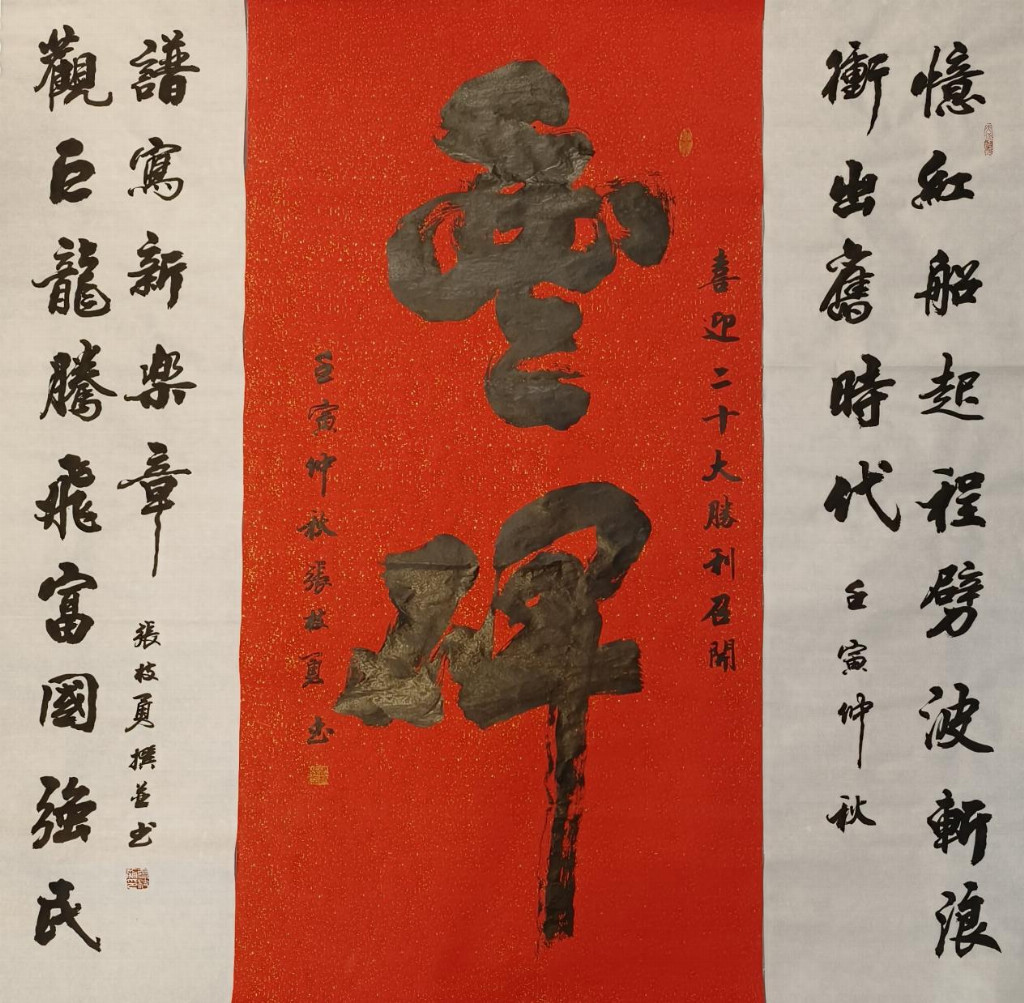 憶紅船起程劈波斬浪
衝出舊時代
壬寅仲秋
喜迎二十大勝利召開
豐碑
壬寅仲秋張枝勇书
譜寫新樂章
張枝勇撰並书
觀巨龍騰飛富國強民